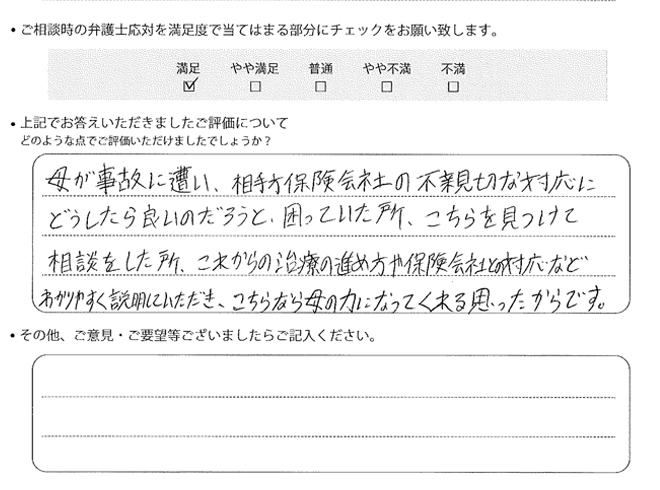 • ご相談時の弁護士応対を満足度で当てはまる部分にチェックをお願い致します。
満足 やや満足 普通 やや不満 不満
☑ ☐ ☐ ☐ ☐
• 上記でお答えいただきましたご評価について
どのような点でご評価いただけましたでしょうか？
母が事故に遭い、相手方保険会社の不親切な対応に
どうしたら良いのだろうと、困っていた所、こちらを見つけて
相談をした所、これからの治療の進め方や保険会社との対応など
わかりやすく説明していただき、こちらなら母の力になってくれる思ったからです。
• その他、ご意見・ご要望等ございましたらご記入ください。